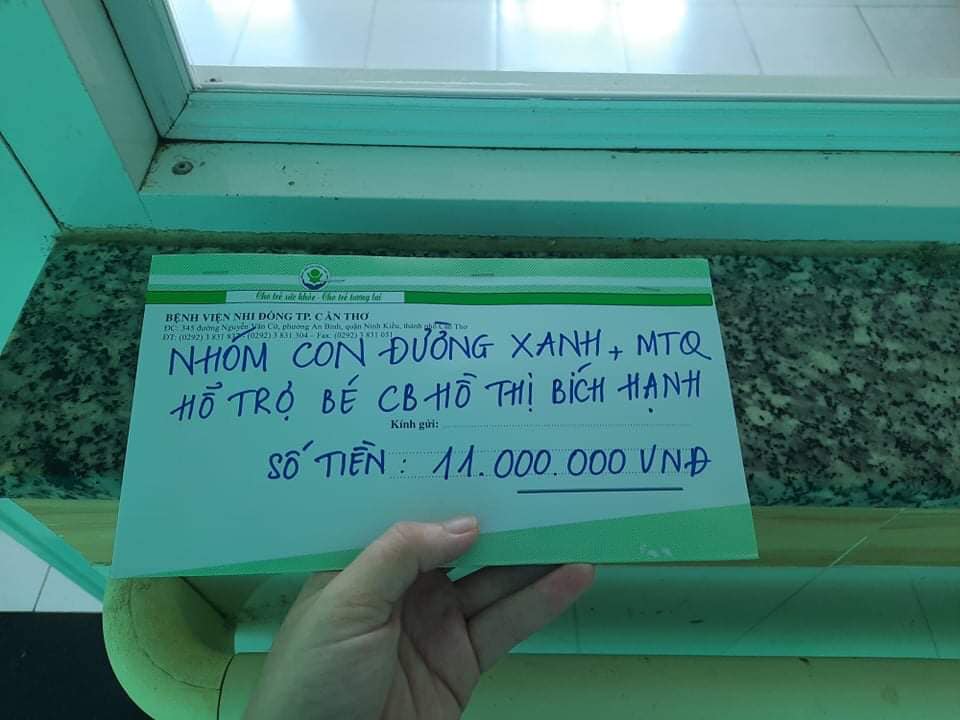 Cho trẻ sức khỏe - Cho trẻ tương lai
BỆNH VIỆN NHI ĐỒNG TP. CẦN THƠ
ĐC: 345 đường Nguyễn Văn Cừ, phường An Bình, quận Ninh Kiều, thành phố Cần Thơ
ĐT: (0292) 3 831 304 – Fax: (0292) 3 831 031
NHÓM CON ĐƯỜNG XANH + MTQ
HỔ TRỢ BÉ CB HỒ THỊ BÍCH HẠNH
Kính gửi:
SỐ TIỀN : 11.000.000 VNĐ